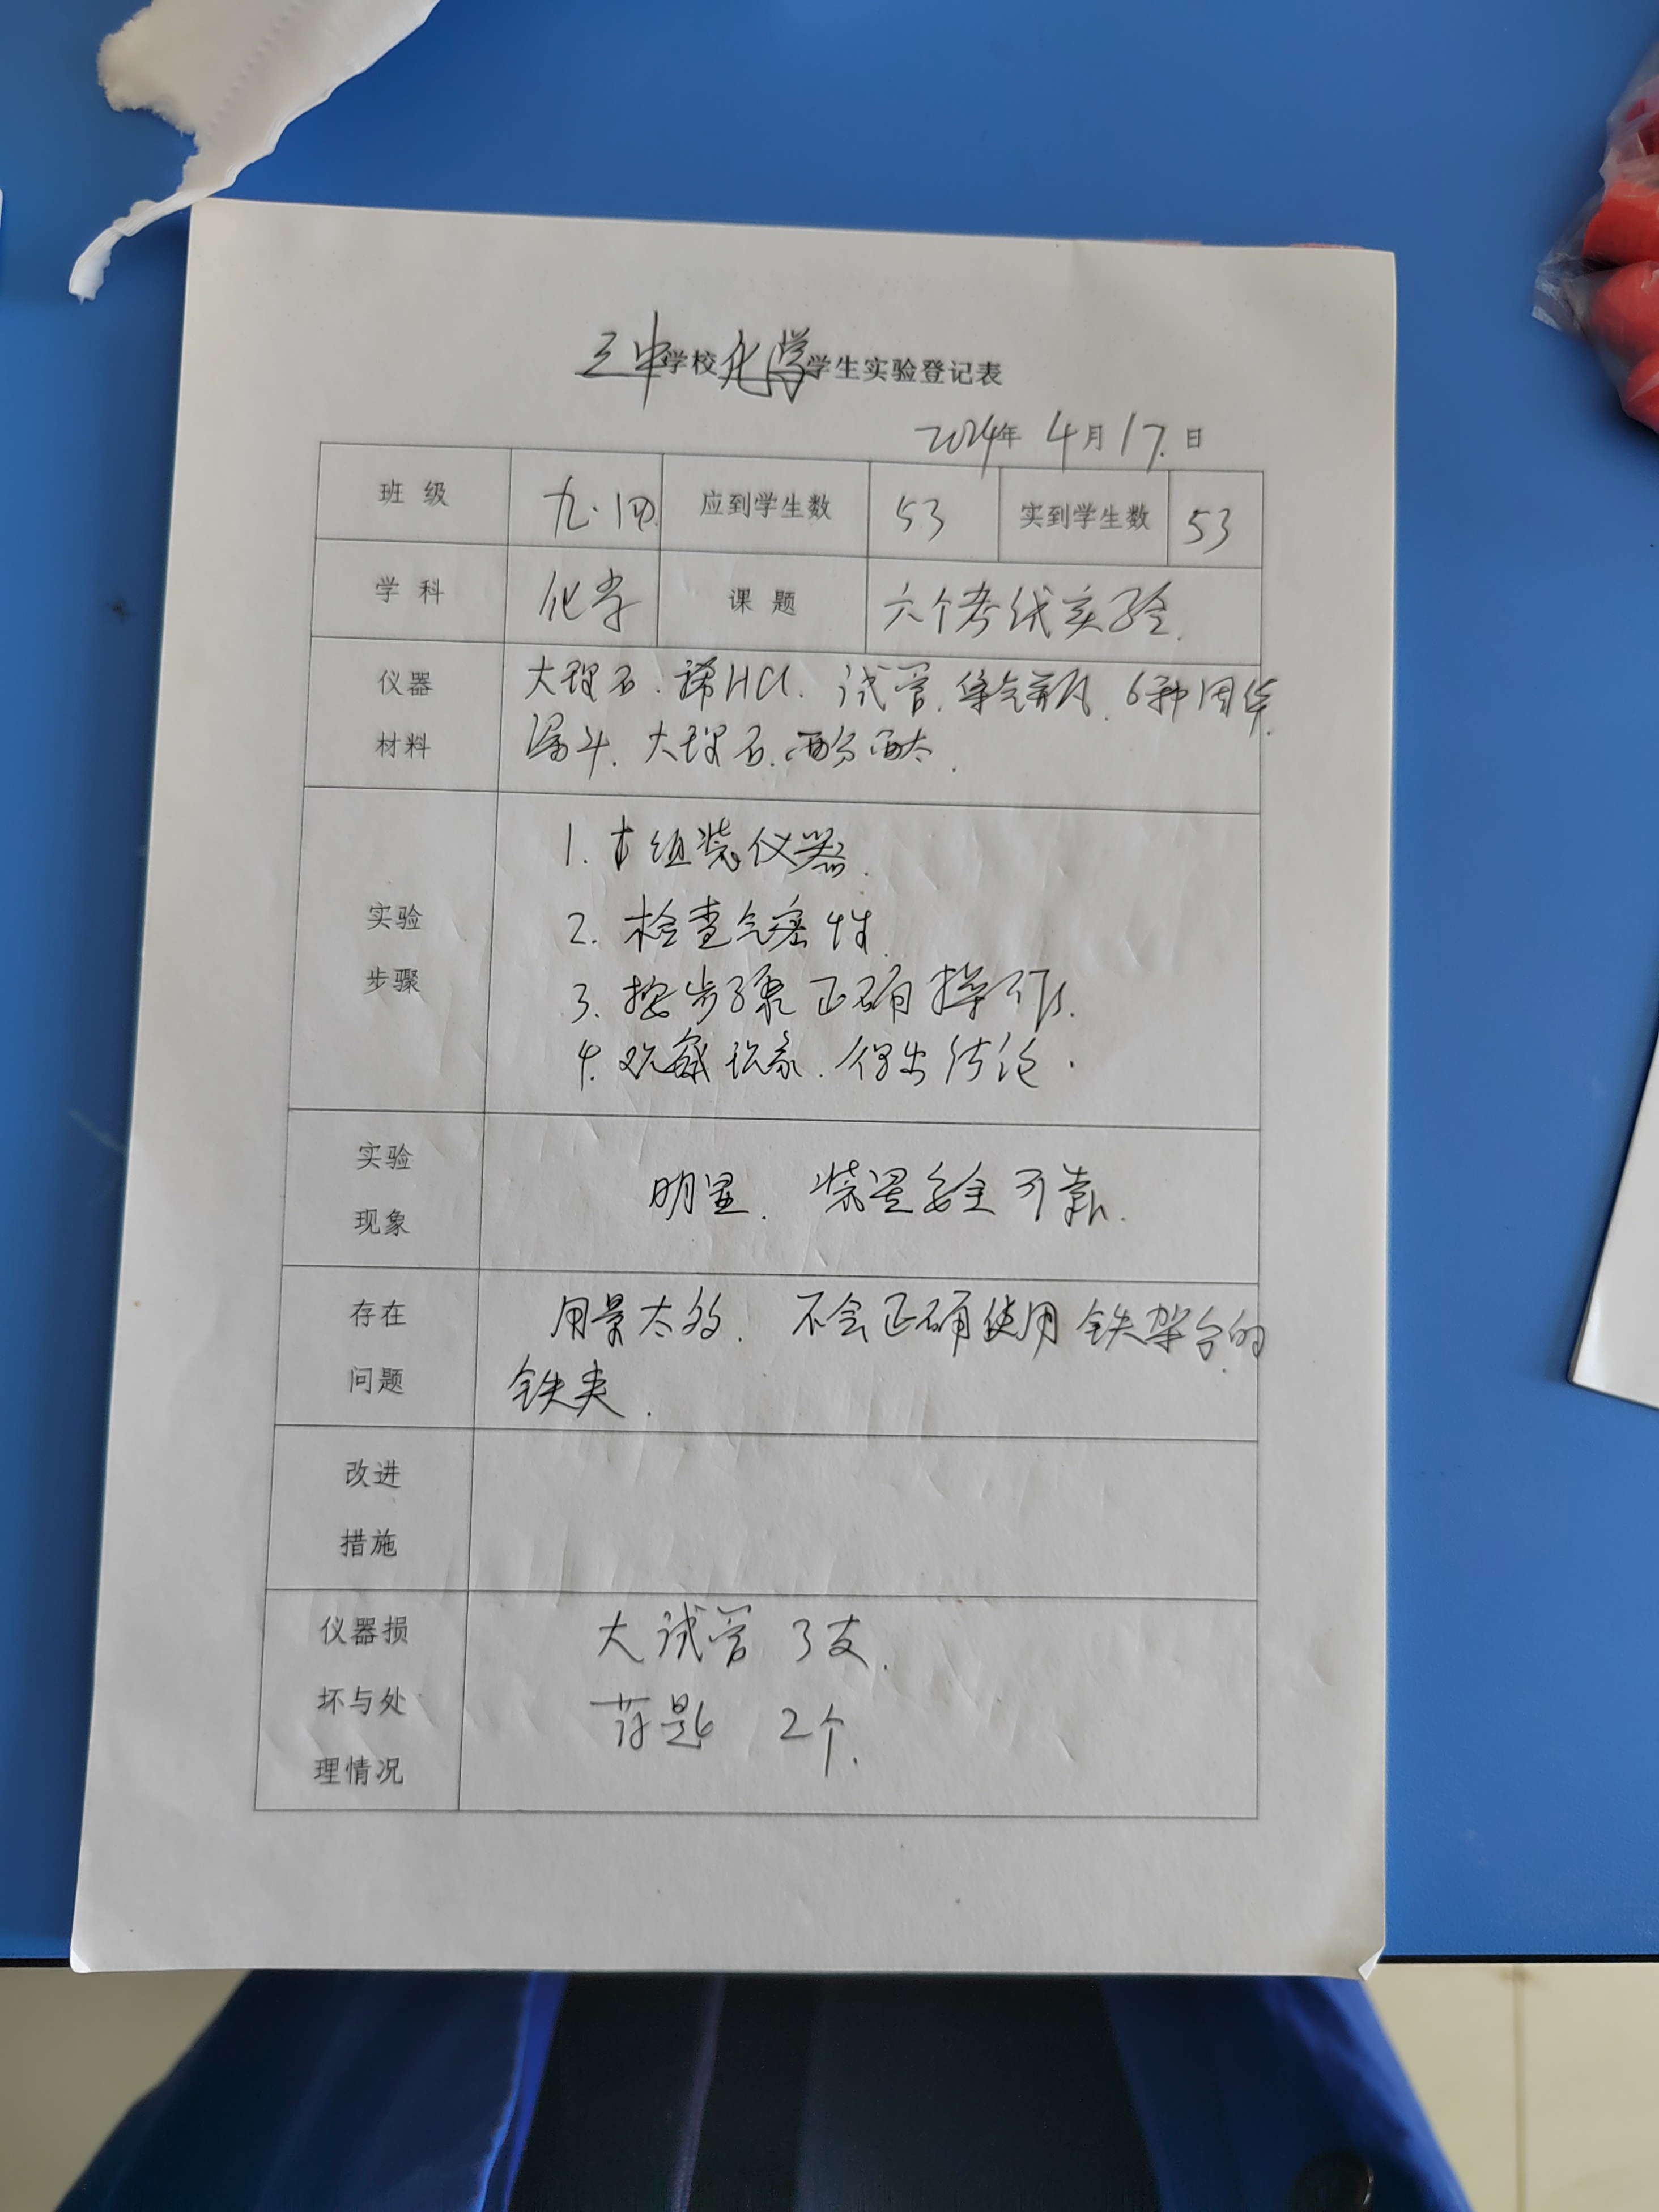 三中学校化学学生实验登记表
2024年 4月17日
班 级 九.四 应到学生数 53 实到学生数 53
学 科 化学 课 题 六个考试实验.
仪器 大理石.稀HCl. 试管.集气瓶. 6种固体
材料 漏斗. 大理石.酚酞.
1. 组装仪器.
实验 2. 检查气密性.
步骤 3. 按步骤正确操作.
4. 观察现象. 得出结论.
实验
现象 明显. 装置安全可靠.
存在 用量太多. 不会正确使用铁架台的
问题 铁夹.
改进
措施
仪器损 大试管 3支.
坏与处 药匙 2个.
理情况